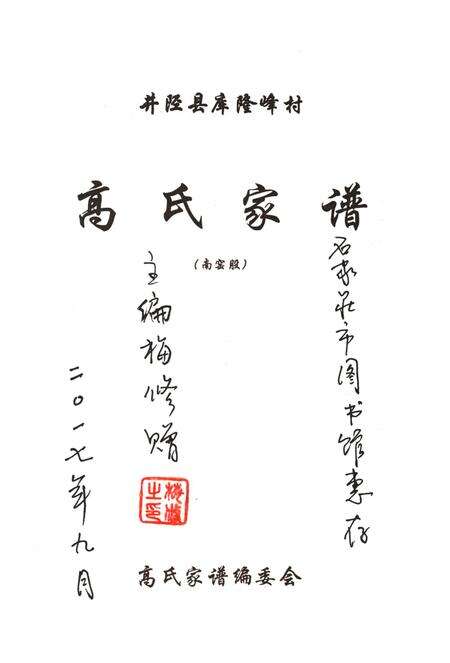 井陉县库隆峰村
高氏家谱
（南窑股）
石家莊市图书馆惠存
主编梅修赠
二〇一七年九月
高氏家谱编委会